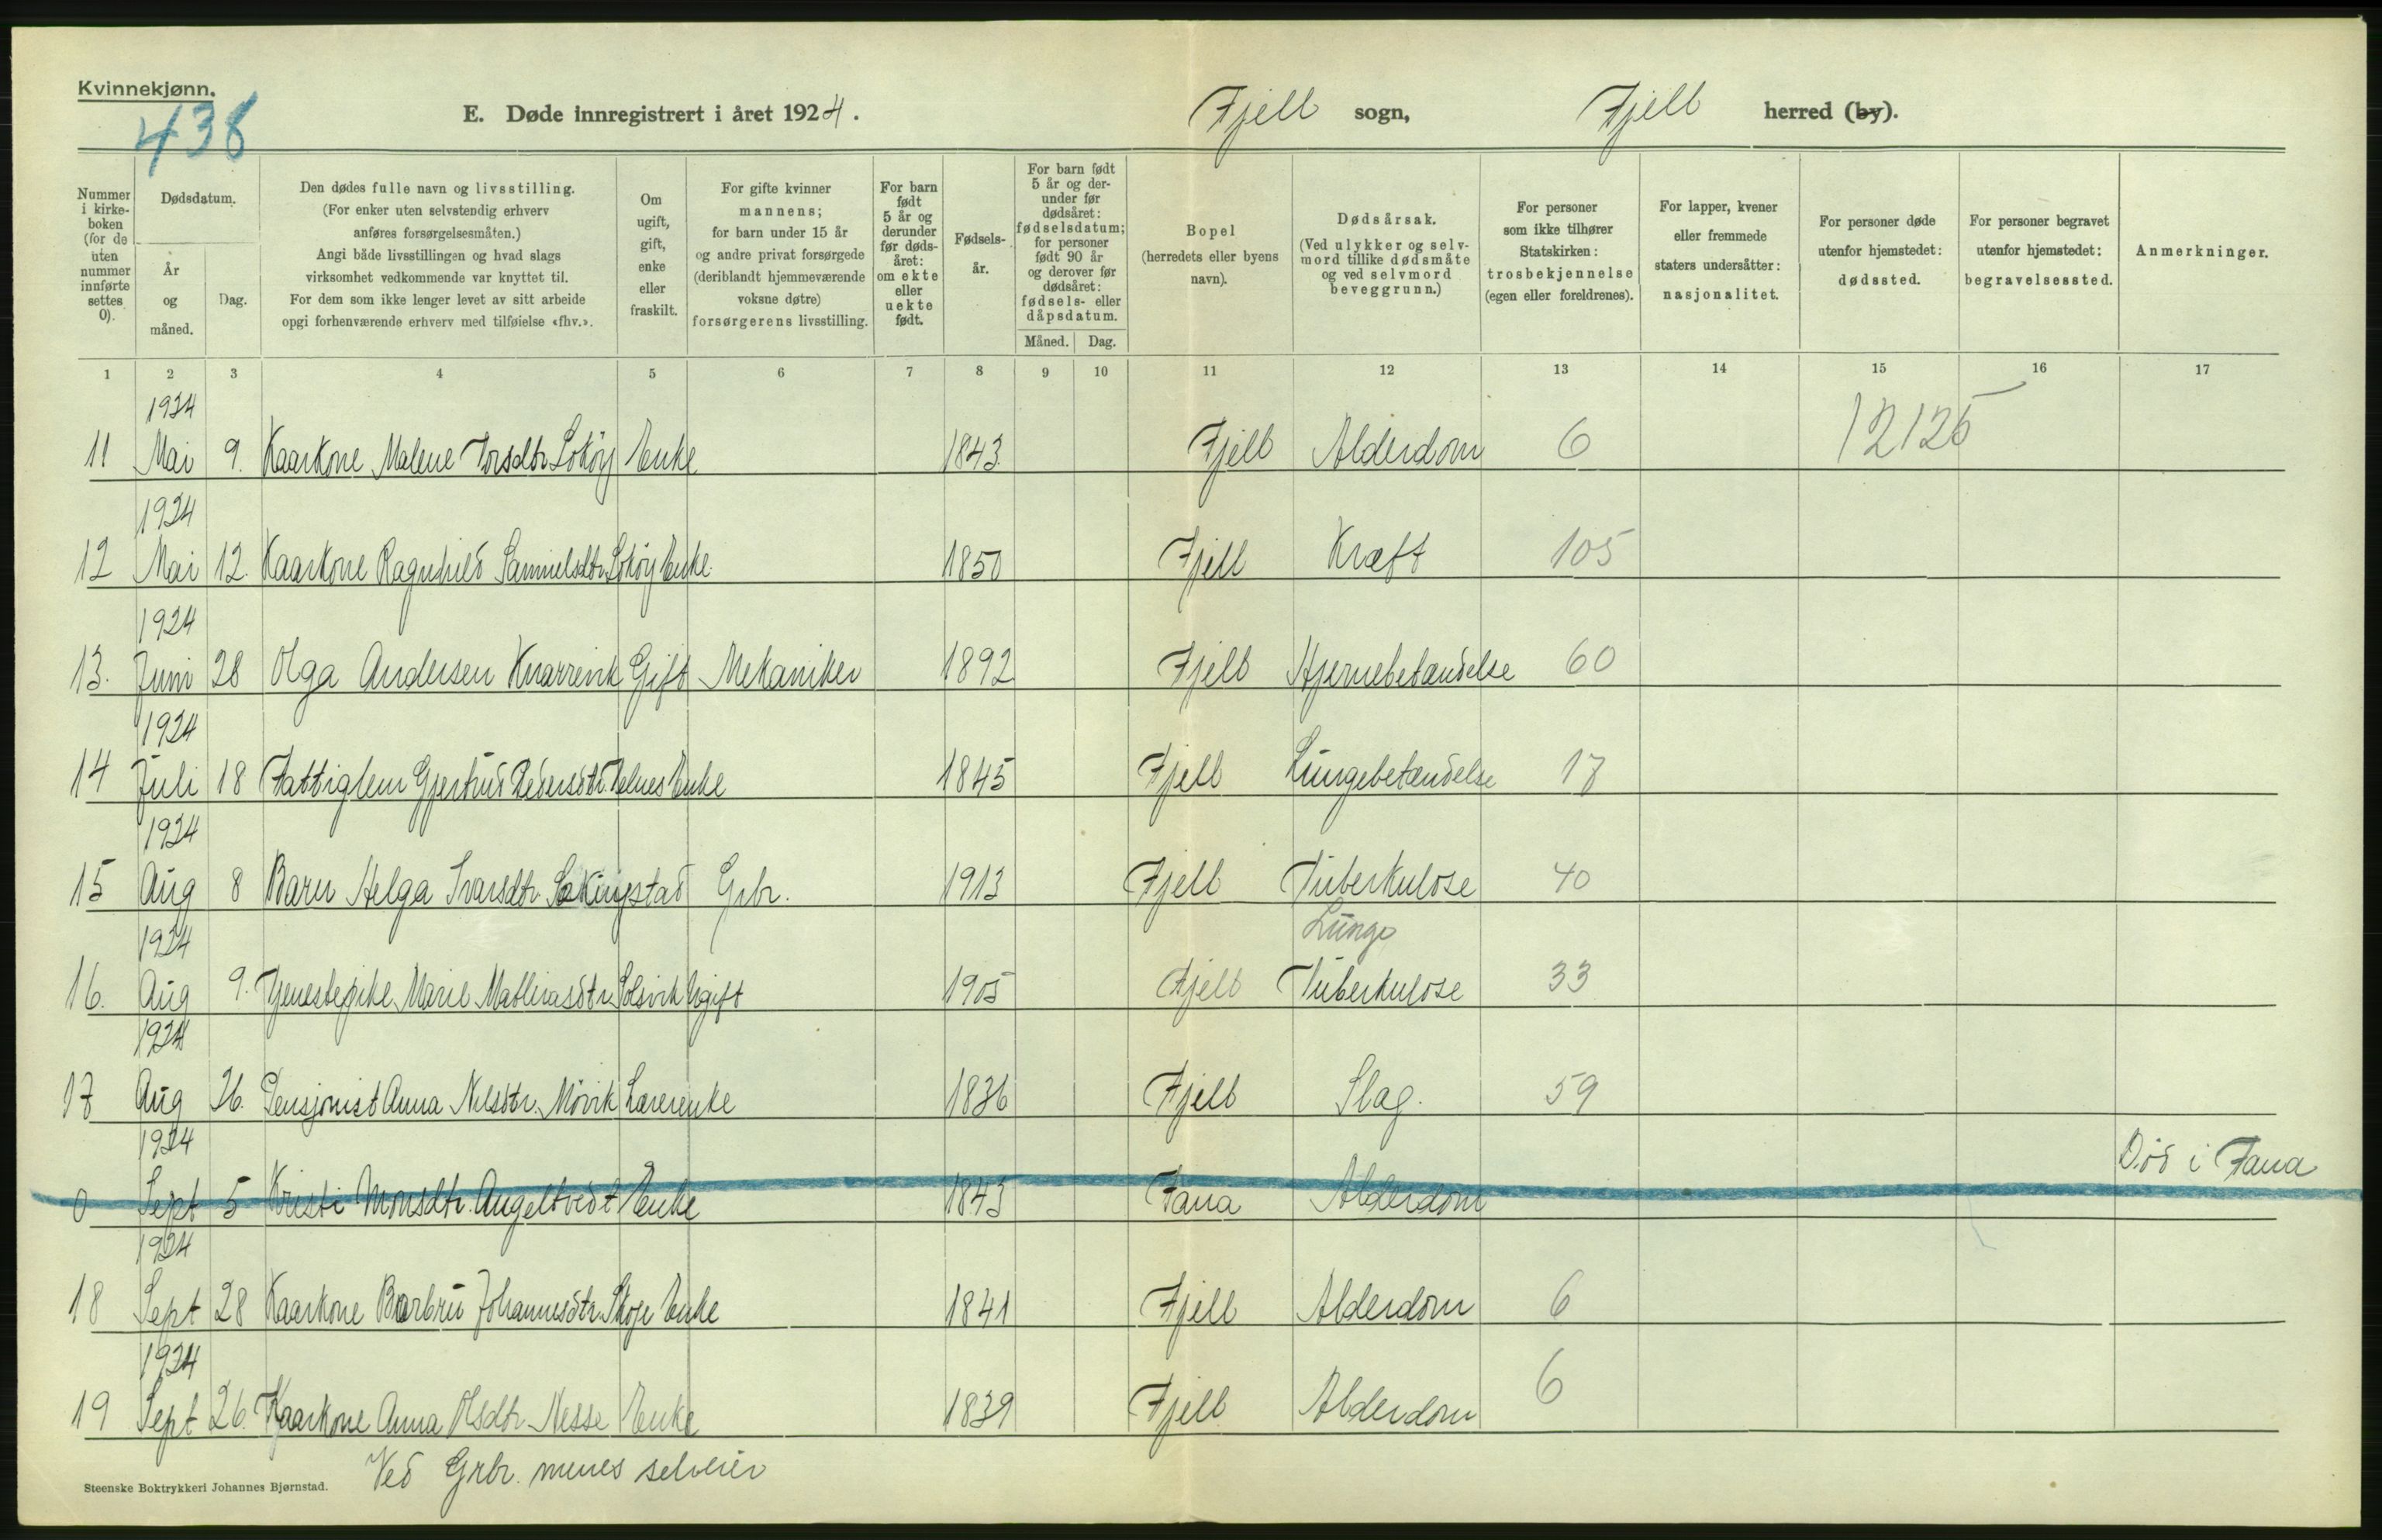 Kvinnekjønn.
438
E. Døde innregistrert i året 1924. Fjell sogn, Fjell herred (by).
Nummer i kirkeboken (for de uten nummer innførte settes 0).
Dødsdatum.
År og måned.
Dag.
Den dødes fulle navn og livsstilling.
(For enker uten selvstendig erhverv anføres forsørgelsesmåten.)
Angi både livsstillingen og hvad slags virksomhet vedkommende var knyttet til.
For dem som ikke lenger levet av sitt arbeide opgi forhenværende erhverv med tilføielse «fhv.».
Om ugift, gift, enke eller fraskilt.
For gifte kvinner mannens; for barn under 15 år og andre privat forsørgede (deriblandt hjemmeværende voksne døtre) forsørgerens livsstilling.
For barn født 5 år og derunder før dødsåret: om ekte eller uekte født.
Fødselsår.
For barn født 5 år og derunder før dødsåret: fødselsdatum; for personer født 90 år og derover før dødsåret: fødsels- eller dåpsdatum.
Måned. Dag.
Bopel (herredets eller byens navn).
Dødsårsak.
(Ved ulykker og selvmord tillike dødsmåte og ved selvmord beveggrunn.)
For personer som ikke tilhører Statskirken: trosbekjennelse (egen eller foreldrenes).
For lapper, kvener eller fremmede staters undersåtter: nasjonalitet.
For personer døde utenfor hjemstedet: dødssted.
For personer begravet utenfor hjemstedet: begravelsessted.
Anmerkninger.
1 2 3 4 5 6 7 8 9 10 11 12 13 14 15 16 17
1924
11 Mai 9. Kaarkone Malene Ivrsdtr Sokøy Enke 1843. Fjell Alderdom 6 12125
1924
12 Mai 12. Kaarkone Ragnhild Samuelsdtr. Sokøy Enke. 1850 Fjell Kræft 105
1924
13. Juni 28 Olga Andersen Knarrevik Gift Mekaniker 1892 Fjell Hjernebetændelse 60
1924
14 Juli 18 Fattiglem Gjertrud Pedersdtr. Enke 1845 Fjell Lungebetændelse 17
1924
15 Aug 8 Barn Helga Ivarsdtr. Sekkingstad Grbr. 1913 Fjell Tuberkulose 40
1924 Lunge
16. Aug 9. Tjenestepike Marie Mathiasdtr. Solsvik Ugift 1905 Fjell Tuberkulose 33
1924
17 Aug 26. Pensjonist Anna Nilsdtr. Møvik Lærerenke 1836 Fjell Slag. 59
1924
0 Sept 5 Kristi Monsdtr. Angeltveit Enke 1843 Fana Alderdom Død i Fana
1924
18 Sept 28 Kaarkone Barbru Johannesdtr. Skoge Enke 1841 Fjell Alderdom 6
1924
19 Sept 26. Kaarkone Anna Olsdtr. Nesse Enke 1839 Fjell Alderdom 6
Ved Grbr. menes selveier
Steenske Boktrykkeri Johannes Bjørnstad.